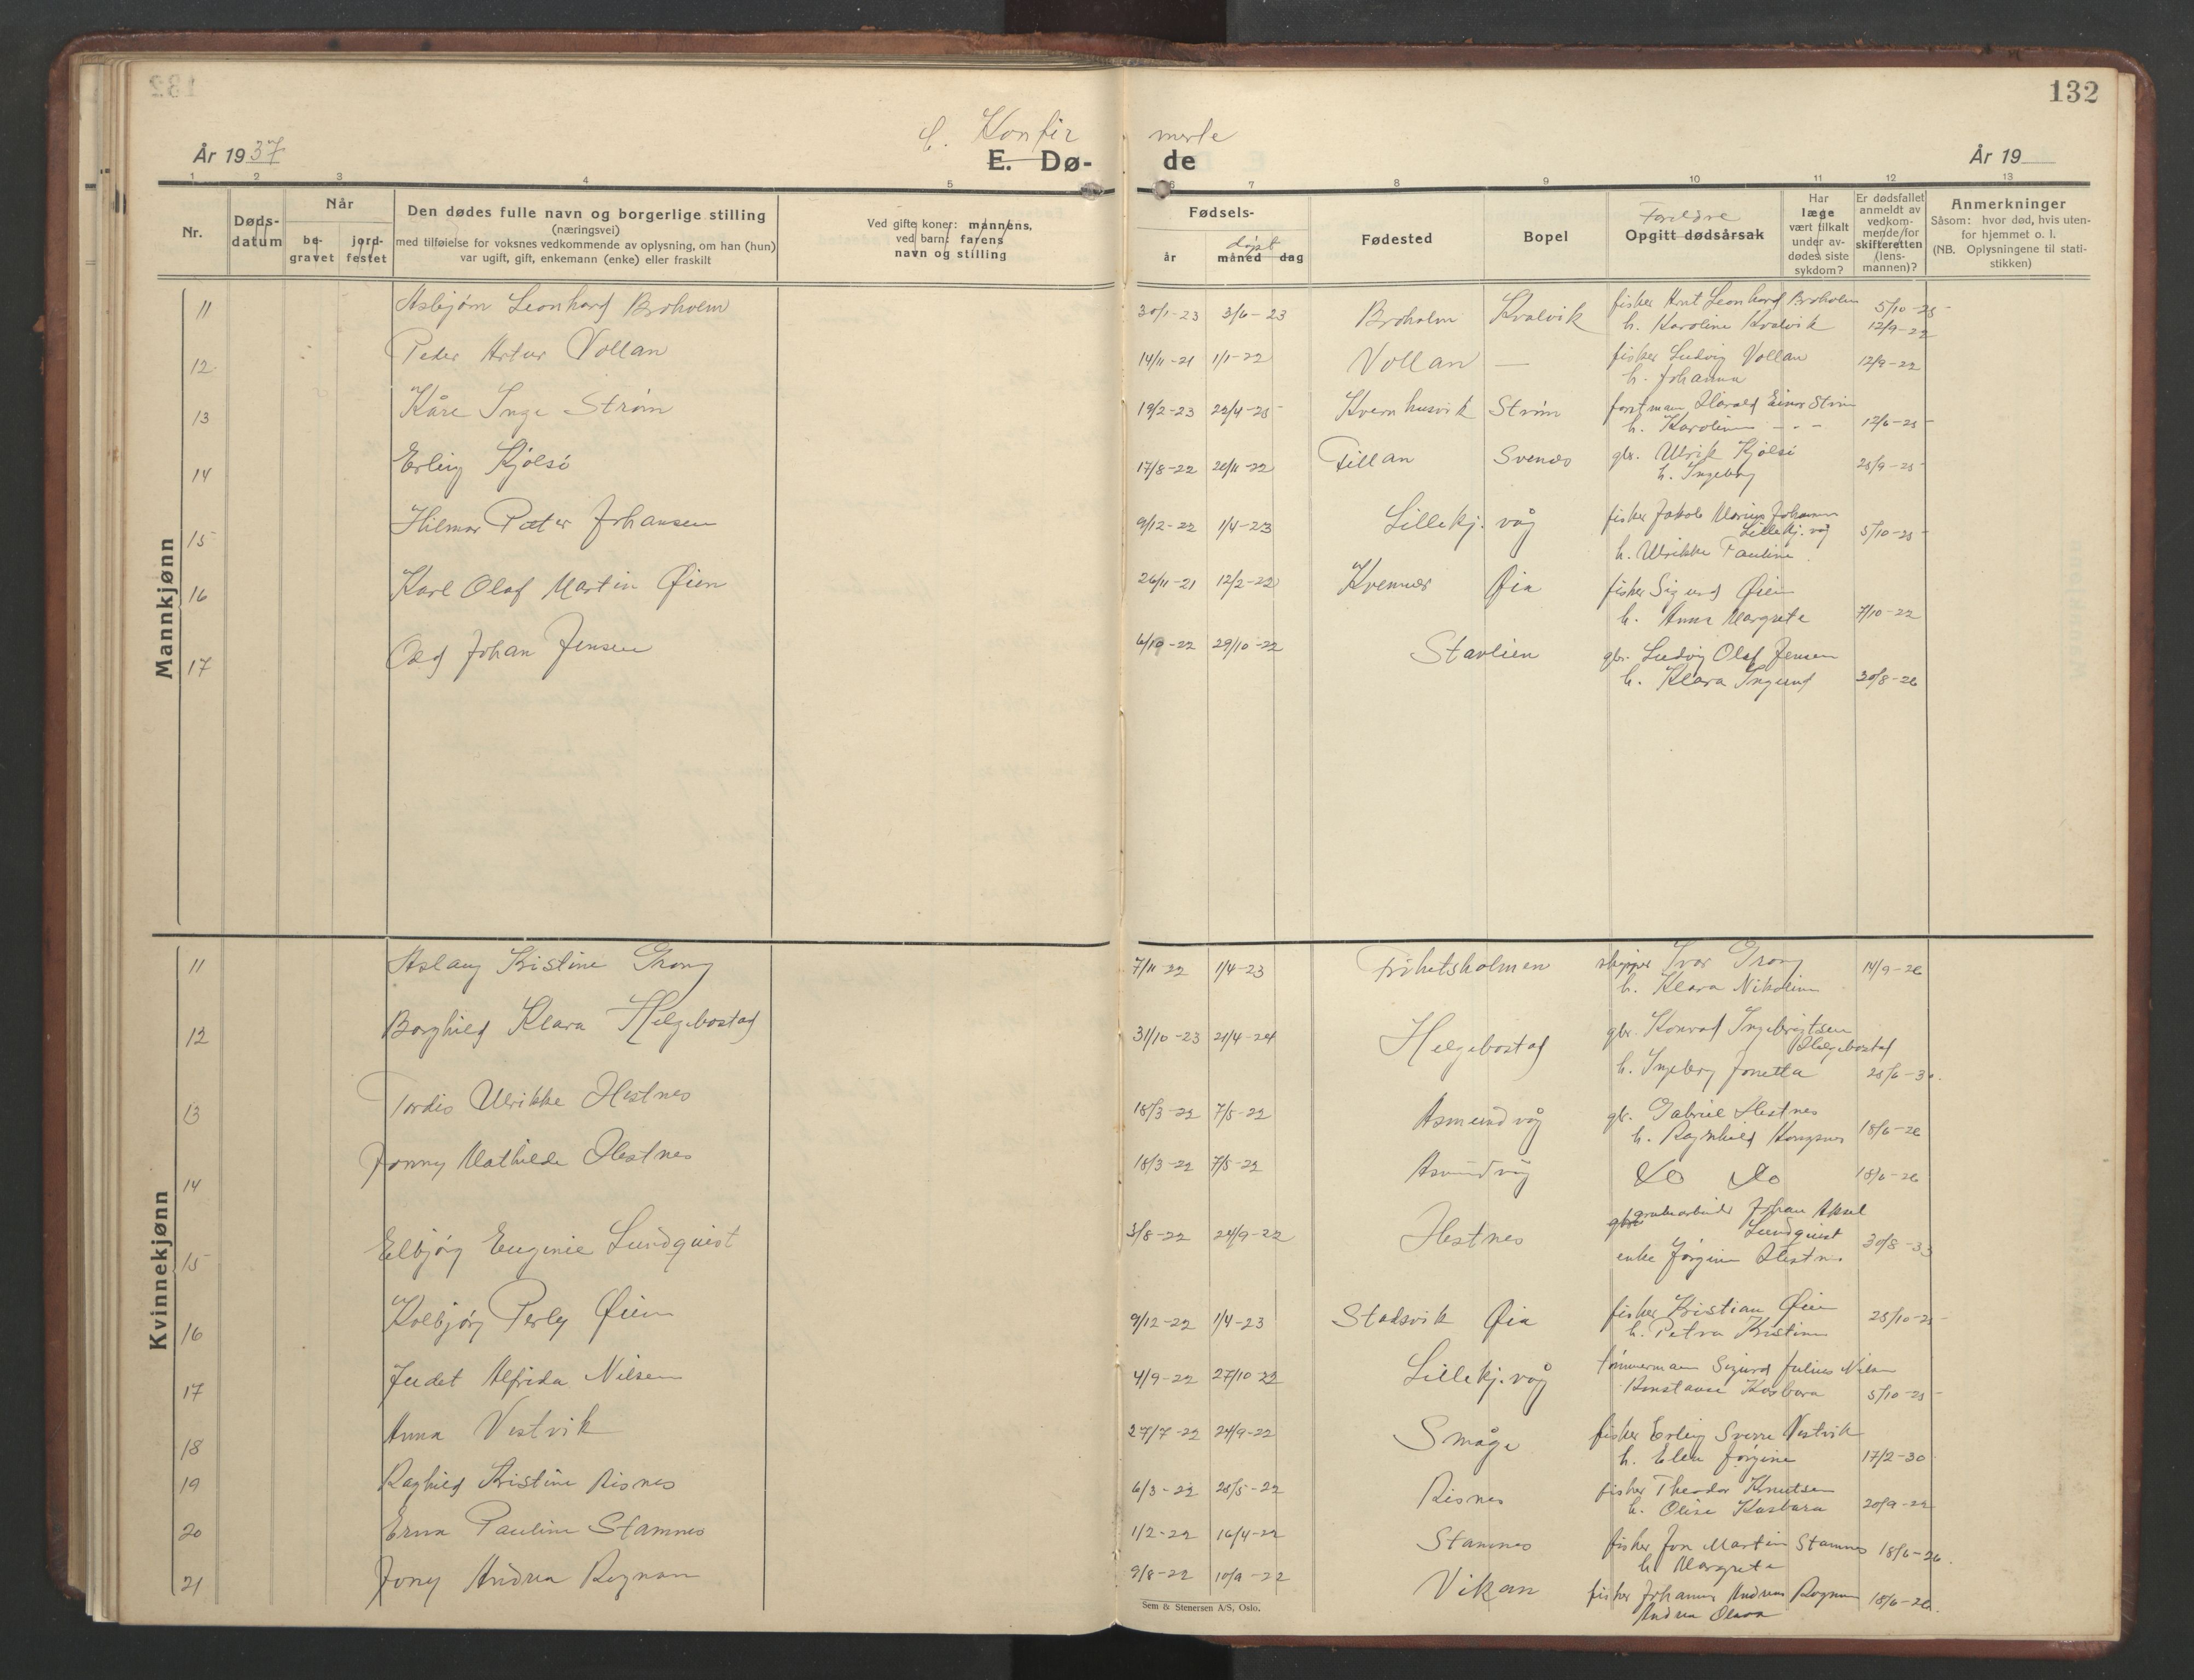 132
C. Konfir merte
År 1937
E. Dø- de
År 19
1 2 3 4 5 6 7 8 9 10 11 12 13
Nr.
Døds-
datum
Når
be-
gravet
jord-
festet
Den dødes fulle navn og borgerlige stilling
(næringsvei)
med tilføielse for voksnes vedkommende av oplysning, om han (hun)
var ugift, gift, enkemann (enke) eller fraskilt
Ved gifte koner: mannens,
ved barn: farens
navn og stilling
Fødsels-
døpt
år måned dag
Fødested
Bopel
Foreldre
Opgitt dødsårsak
Har
læge
vært tilkalt
under av-
dødes siste
sykdom?
Er dødsfallet
anmeldt av
vedkom-
mende for
skifteretten
(lens-
mannen)?
Anmerkninger
Såsom: hvor død, hvis uten-
for hjemmet o. l.
(NB. Oplysningene til stati-
stikken)
Mannkjønn
11 Asbjørn Leonhard Broholm 30/1-23 3/6-23 Broholm Kvalvik fisker Knut Leonhard Broholm 5/10-25
h. Karoline Kvalvik 12/9-22
12 Peder Artur Vollan 14/11-21 1/1-22 Vollan — fisker Ludvig Vollan 12/9-22
h. Johanna
13 Kåre Inge Strøm 19/2-23 22/4-25 Kvernhusvik Strøm forstman Harald Einar Strøm
h. Karoline - - - 12/6-25
14 Erling Kjølsø 17/8-22 26/11-22 Fillan Svenås gbr. Ulrik Kjølsø 25/9-25
h. Ingeborg
15 Hilmar Peter Johansen 9/12-22 1/4-23 Lillekj. våg fisker Jakob Marius Johansen
Lillekj. våg 5/10-25
h. Ulrikke Pauline
16 Karl Olaf Martin Øien 26/11-21 12/2-22 Kvernnes Øia fisker Sigurd Øien
h. Anna Margrete 7/10-22
17 Odd Johan Jensen 6/10-22 29/10-22 Stavlien gbr. Ludvig Olaf Jensen
h. Klara Ingerid 30/8-26
Kvinnekjønn
11 Aslaug Kristine Grong 7/11-22 1/4-23 Frihetsholmen skipper Ivar Grong 14/9-26
h. Klara Nikoline
12 Borghild Klara Helgebostad 31/10-23 21/4-24 Helgebostad gbr. Konrad Ingebrigtsen
Helgebostad
h. Ingeborg Jonetta 28/6-30.
13 Tordis Ulrikke Hestnes 18/3-22 7/5-22 Asmundvåg gbr. Gabriel Hestnes
h. Ragnhild Kongsnes 18/6-26
14 Jonny Mathilde Hestnes 18/3-22 7/5-22 Asmundvåg do do 18/6-26
15 Elbjørg Eugenie Lundquist 3/8-22 24/9-22 Hestnes gbr grubearbeider Johan Aksel
Lundquist
enke Jørgine Hestnes 30/8-33
16 Kolbjørg Perly Øien 9/12-22 1/4-23 Stadsvik Øia fisker Kristian Øien 25/10-25
h. Petra Kristine
17 Judet Alfrida Nilsen 4/9-22 27/10 22 Lillekj. våg tømmermann Sigurd Julius Nilsen
Konstanse Karbora 5/10-25
18 Anna Vestvik 27/7-22 24/9-22 Småge fisker Erling Sverre Vestvik
h. Elen Jørgine 17/2-30
19 Raghild Kristine Risnes 6/3-22 28/5-22 Risnes fisker Theodor Knutsen
h. Olise Karbara 20/9-22
20 Erna Pauline Stamnes 1/2-22 16/4-22 Stamnes fisker Jon Martin Stamnes 18/6-26.
h. Margrete
21 Jony Andrea Rognan 9/8-22 10/9-22 Vikan fisker Johannes Andreas Rognan 18/6-26.
Andrea Olava
Sem & Stenersen A/S, Oslo.